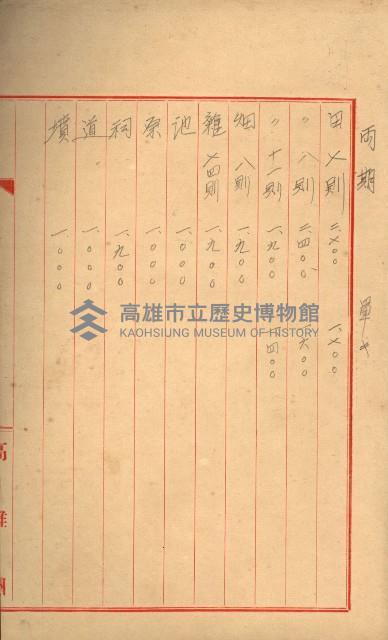 両期 單期
田 七則 二、七〇〇 一、七〇〇
〃 八則 二、四〇〇 一、六〇〇
〃 十一則 一、九〇〇 一、四〇〇
畑 八則 一、九〇〇
雜 七四則 一、九〇〇
池 一、〇〇〇
原 一、〇〇〇
祠 一、九〇〇
道 〃 一、〇〇〇
墳 一、〇〇〇
高雄州
高雄市立歷史博物館
KAOHSIUNG MUSEUM OF HISTORY